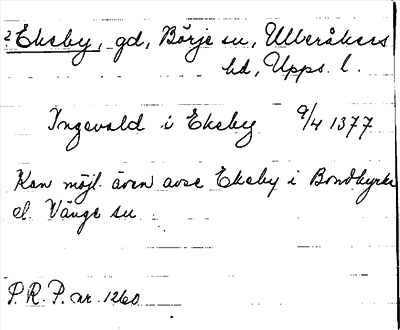 2 Ekeby, gd, Börje sn, Ulleråkers
hd, Upps. l.
Ingevald i Ekeby 9/4 1377
Kan möjl. även avse Ekeby i Bondkyrko
el. Vänge sn
P.R.P. nr. 1260